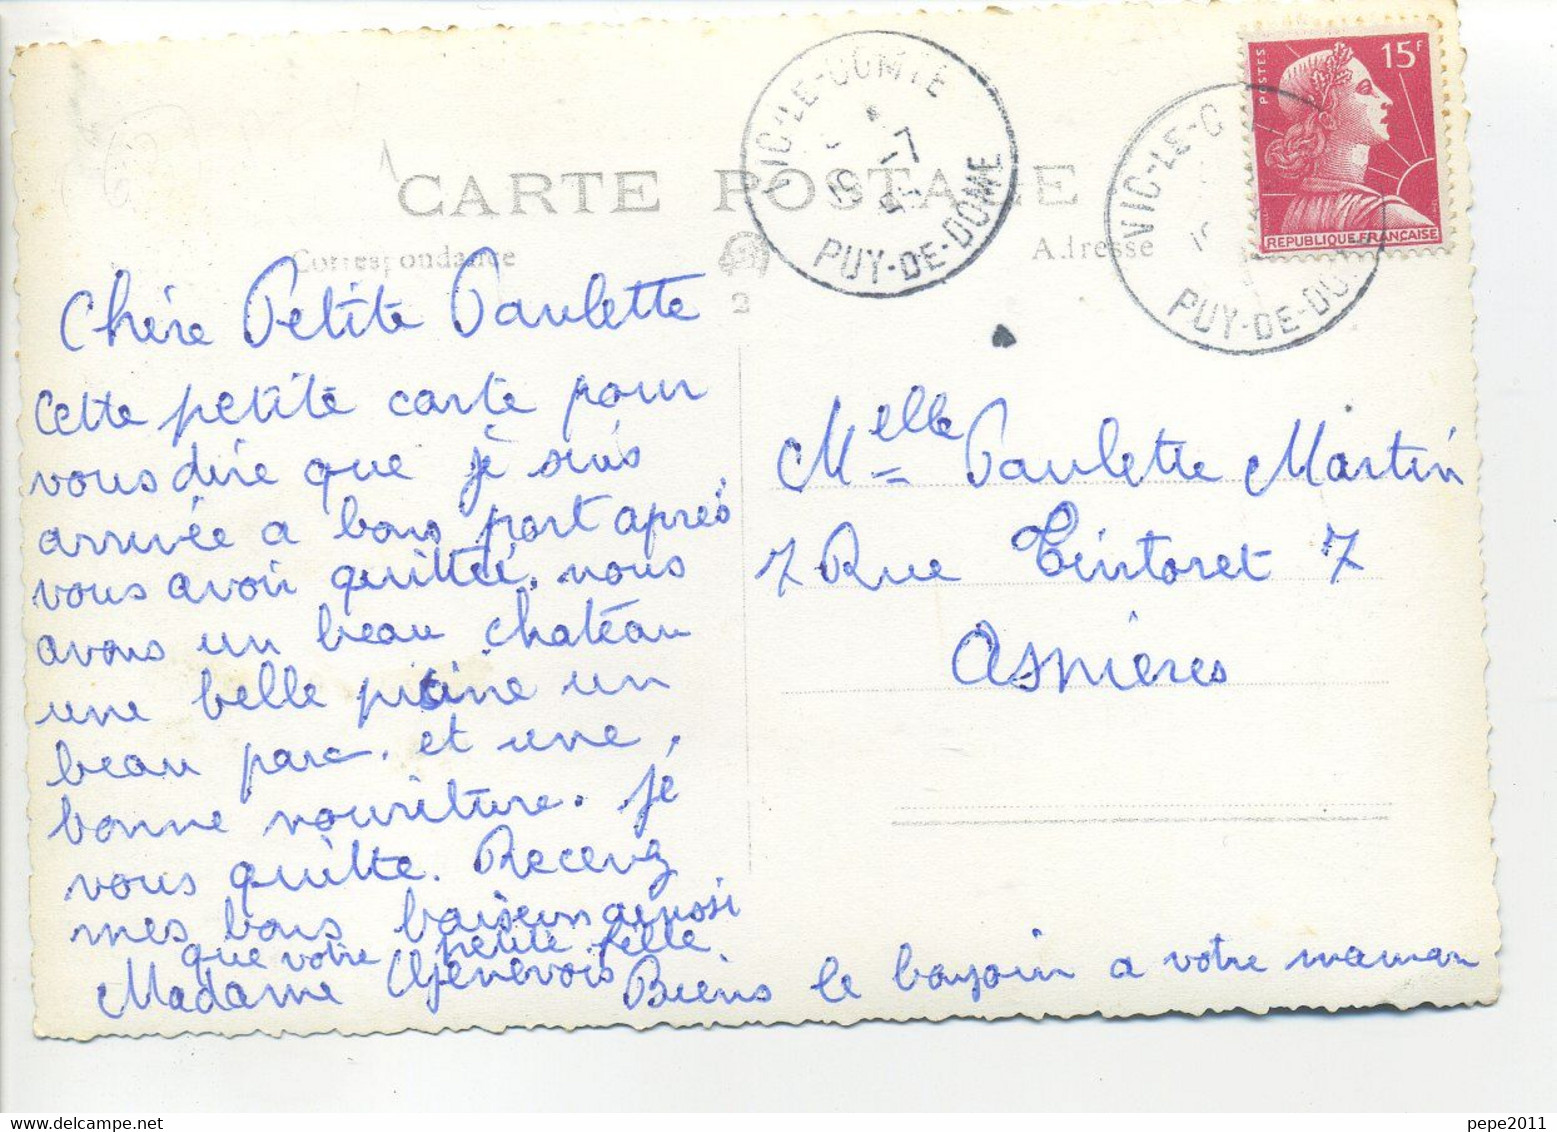 CARTE POSTALE
Correspondance
Adresse
2
VIC-LE-COMTE
PUY-DE-DOME
VIC-LE-C
PUY-DE-DOM
POSTES
15F
REPUBLIQUE FRANÇAISE
Chère Petite Paulette
cette petite carte pour
vous dire que je suis
arrivée a bons port après
vous avoir quitté. nous
avons un beau château
une belle picine un
beau parc. et une
bonne nouriture. je
vous quitte. Recevez
mes bons baisers ainsi
que votre petite fille
Madame Genevois
Biens le bonjoin a votre maman
Melle Paulette Martin
7 Rue Tintoret 7
Asnières
delcampe.net
pepe2011